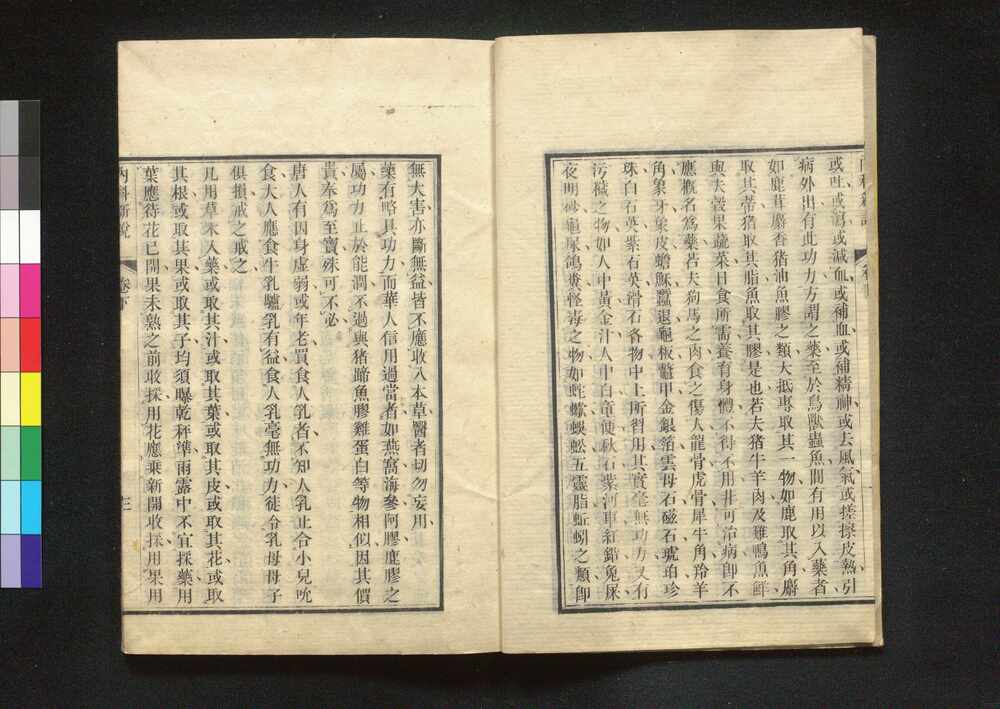 或吐或瀉或減血或補血或補精神或去風氣或搓擦皮熱引
病外出有此功力方謂之藥至於鳥獸蟲魚間有用以入藥者
如鹿茸麝香猪油魚膠之類大抵專取其一物如鹿取其角麝
取其蒂猪取其脂魚取其膠是也若夫猪牛羊肉及雞鴨魚鮮
與夫穀果蔬菜日食所需養育身體不得不用非可治病卽不
應槪名爲藥若夫狗馬之肉食之傷人龍骨虎骨犀牛角羚羊
角象牙象皮蟾酥蠶退龜板鼈甲金銀箔雲母石磁石琥珀珍
珠白石英紫石英滑石各物中土所習用其實毫無功力又有
污穢之物如人中黃金汁人中白童便秋石紫河車紅鉛兔屎
夜明砂龜尿鴿糞怪毒之物如蛇蠍蜈蚣五靈脂蚯蚓之類卽
無大害亦斷無益皆不應收入本草醫者切勿妄用
藥有略具功力而華人信用過當者如燕窩海參阿膠鹿膠之
屬功力止於能潤不過與猪蹄魚膠雞蛋白等物相似因其價
貴奉爲至寶殊可不必
唐人有因身虛弱或年老買食人乳者不知人乳止合小兒吮
食大人應食牛乳驢乳有益食人乳毫無功力徒令乳母母子
俱損戒之戒之
凡用草木入藥或取其汁或取其葉或取其皮或取其花或取
其根或取其果或取其子均須曝乾秤準雨露中不宜採藥用
葉應待花已開果未熟之前收採用花應乘新開收採用果用
內科新說
卷下